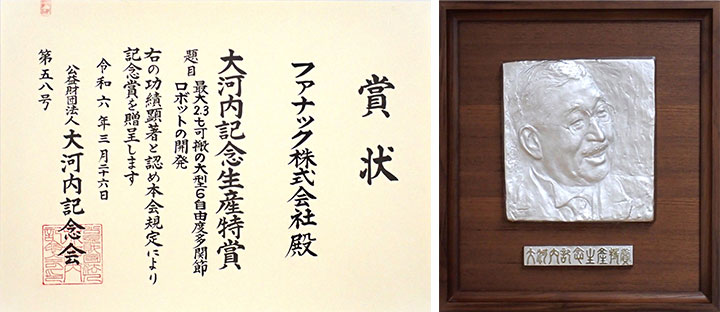 賞状
ファナック株式会社殿
大河内記念生産特賞
題目 最大2.3㌧可搬の大型6自由度多関節
ロボットの開発
右の功績顕著と認め本会規定により
記念賞を贈呈します
令和六年三月二十六日
公益財団法人 大河内記念会
第五八号
大河内記念生産特賞